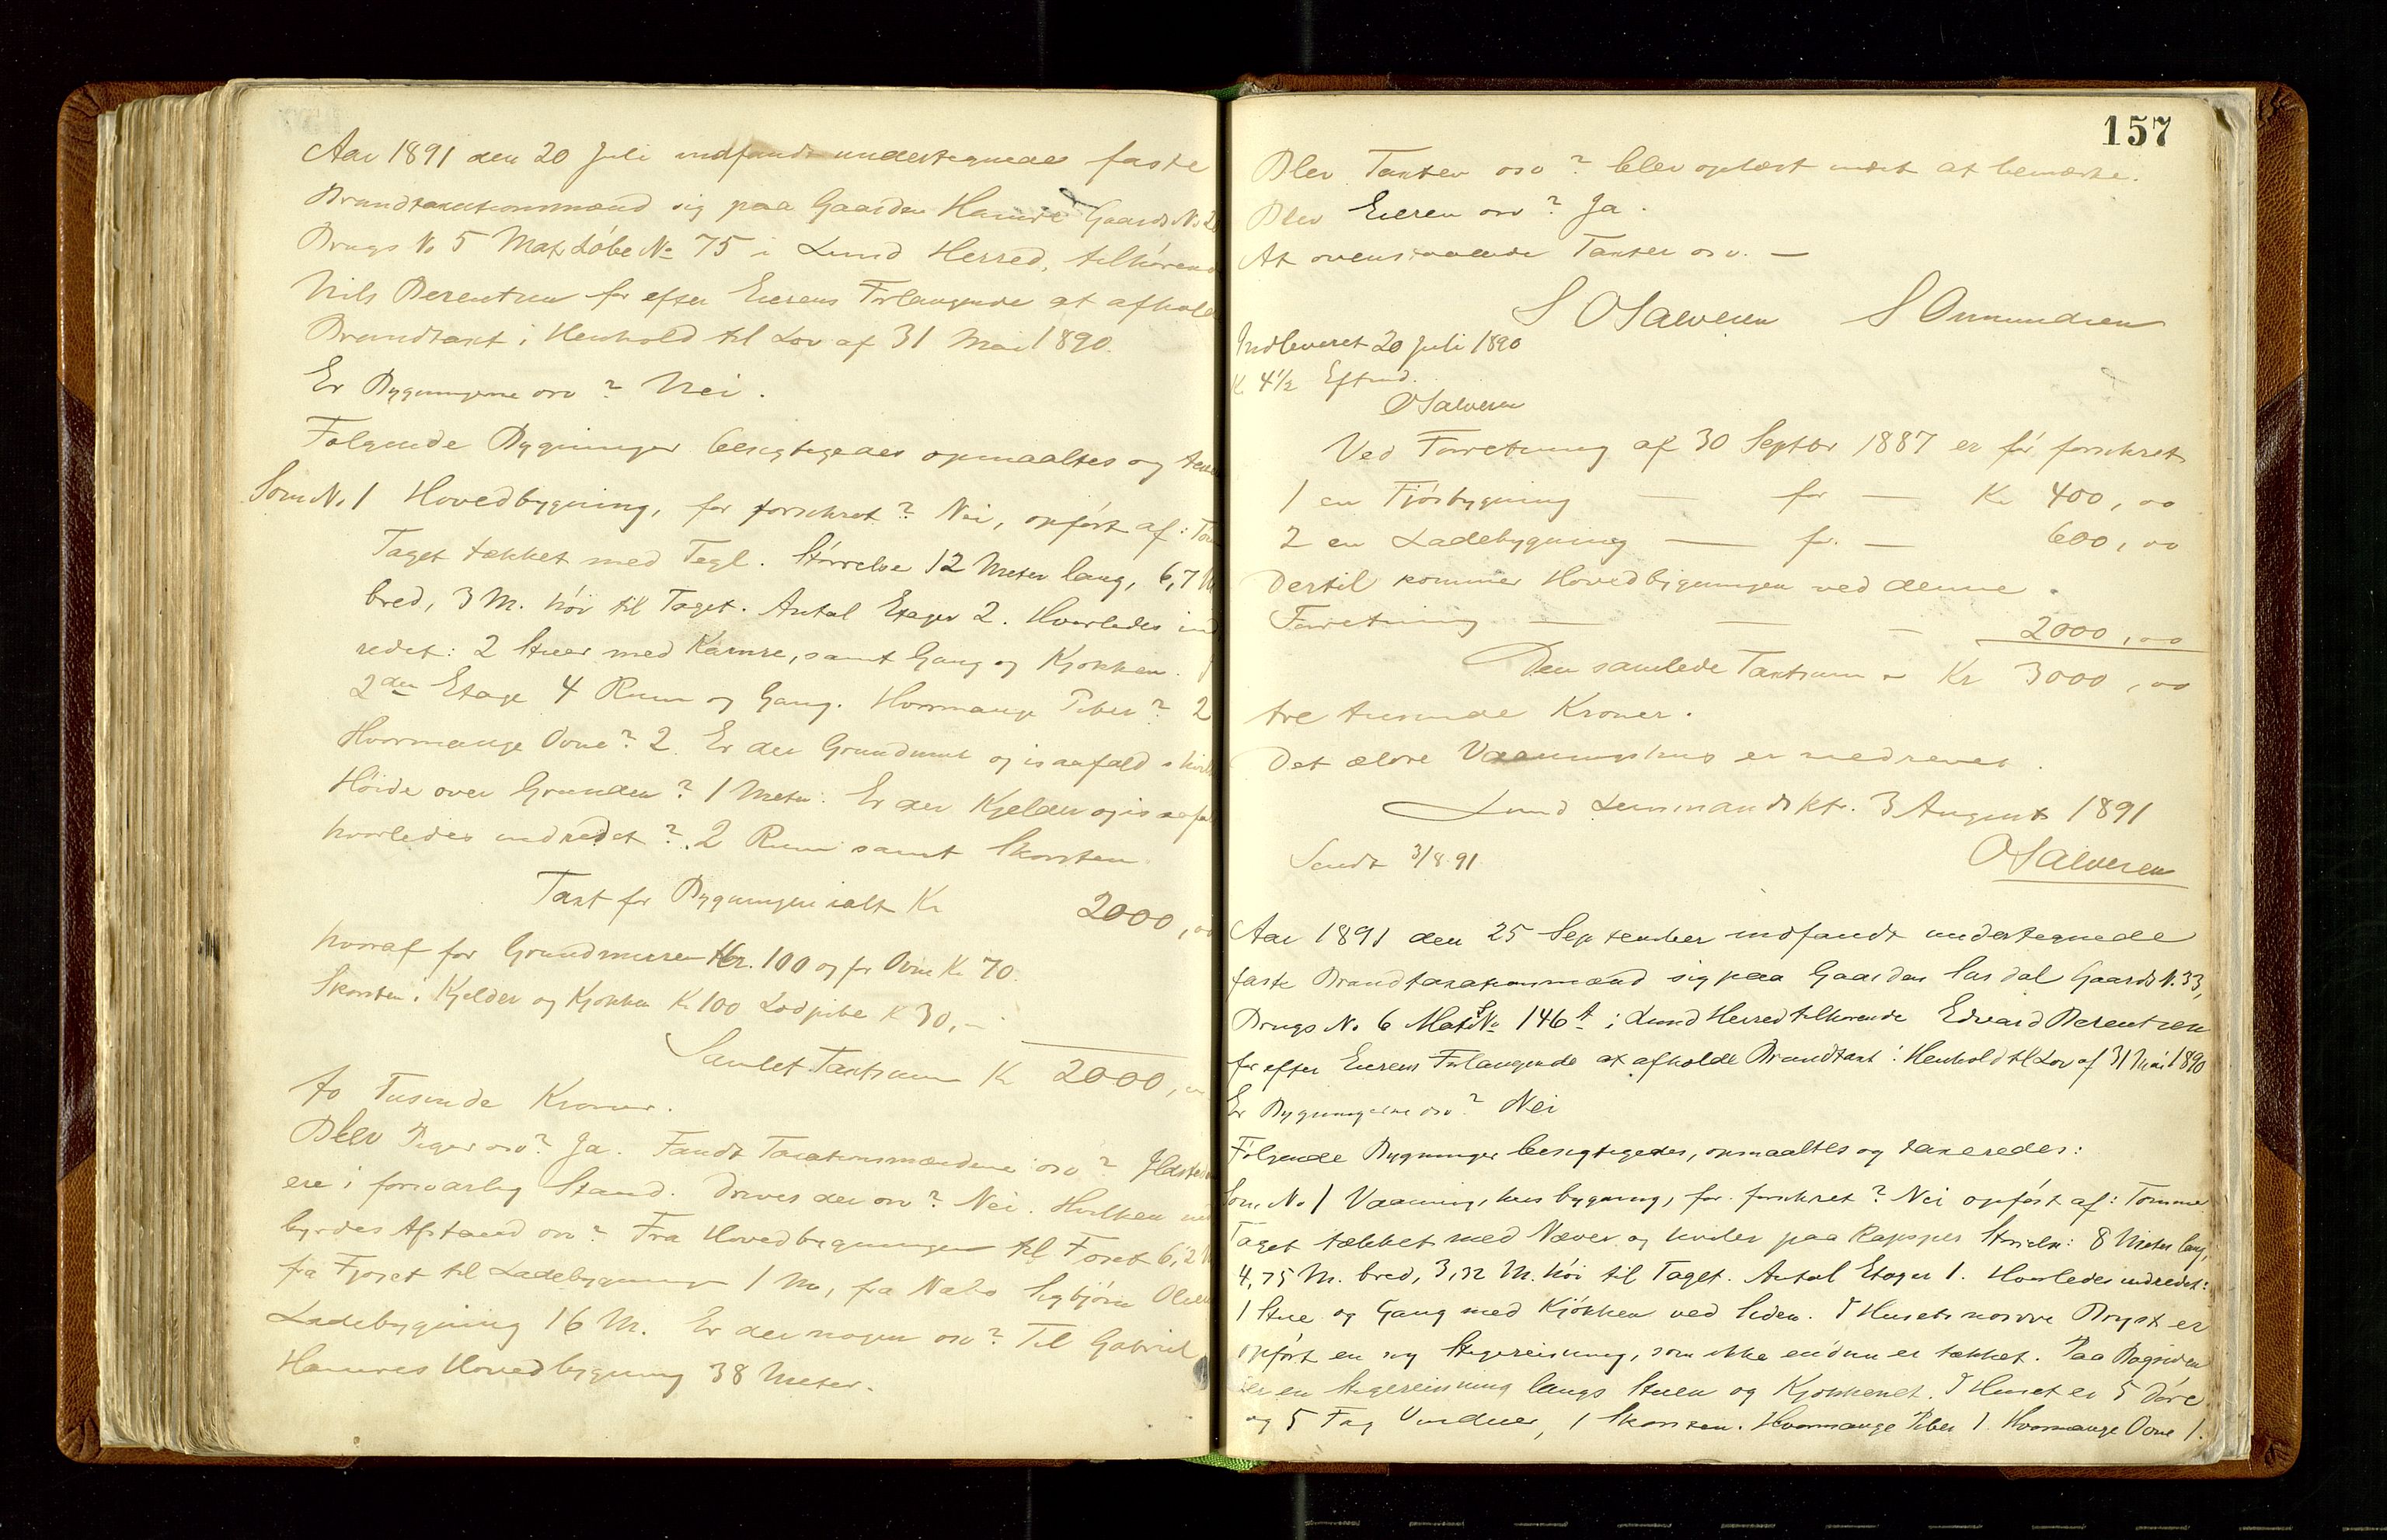 Aar 1891 den 20 Juli indfandt undertegnede faste
Brandtaxationsmænd sig paa Gaarden Hamre Gaards No 2
Brugs No 5 Mat Løbe No 75 i Lund Herred, tilhørend
Nils Berentsen for efter Eierens Forlangende at afhold
Brandtaxt i Henhold til Lov af 31 Mai 1890.
Er Bygningerne osv? Nei.
Følgende Bygninger besigtigedes opmaaltes og
Som No 1 Hovedbygning, før forsikret? Nei, opført af: Tøm
Taget tækket med Tegl. Størrelse 12 Meter lang, 6,7 M
bred, 3 M. høi til Taget. Antal Etager 2. Hvorledes ind
redet: 2 Stuer med Kamre, samt Gang og Kjøkken. I
2den Etage 4 Rum og Gang. Hvormange Piber? 2
Hvormange Ovne? 2. Er der Grundmur og isaafald i hvilk
Høide over Grunden? 1 Meter. Er der Kjelder og isaafa
hvorledes indredet? 2 Rum samt Skorsten
Taxt for Bygningen ialt Kr 2000,00
hvoraf for Grundmuren Kr. 100 og for Ovne Kr 70.
Skorsten i Kjelder og Kjøkken Kr 100 Lodpibe Kr 30,-
Samlet Taxtsum Kr 2000,
to Tusinde Kroner.
Blev Piger osv? Ja. Fandt Taxationsmændene osv? Ildsted
ere i forsvarlig Stand. Drives der osv? Nei. Hvilken
byrdes Afstand osv? Fra Hovedbygningen til Fjøset 6,2 M
fra Fjøset til Ladebygningen 1 M, fra Nabo Sigbjørn Olsen
Ladebygning 16 M. Er der nogen osv? Til Gabriel
Hamres Hovedbygning 38 Meter.
157
Blev Taxten osv? blev oplæst intet at bemærke.
Blev Eieren osv? Ja.
At ovenstaaende Taxter osv. —
S OSalvesen S Osmundsen
Indleveret 20 Juli 1890
K 4½ Eftmd.
OSalvesen
Ved Forretning af 30 Septbr 1887 er før forsikret
1 en Fjøsbygning — for — Kr 400,00
2 en Ladebygning — for — 600,00
Dertil kommer Hovedbygningen ved denne
Forretning — — — 2000,00
Den samlede Taxtsum = Kr 3000,00
tre tusinde Kroner.
Det ældre Vaaningshus er nedrevet.
Lund Lensmandsktr. 3 August 1891
Sendt 3/8 91 OSalvesen
Aar 1891 den 25 September indfandt undertegnede
faste Brandtaxationsmænd sig paa Gaarden Lasdal Gaards N. 33,
Brugs No 6 Mat No 146 i Lund Herred tilhørende Edvard Berentsen
for efter Eierens Forlangende at afholde Brandtaxt i Henhold til Lov af 31 Mai 1890
Er Bygningerne osv? Nei
Følgende Bygninger besigtigedes, opmaaltes og taxeredes:
Som No 1 Vaaningshusbygning, før forsikret? Nei opført af: Tømmer
Taget tækket med Næver og hviler paa Størrelse: 8 Meter lang,
4,75 M. bred, 3,32 M. høi til Taget. Antal Etager 1. Hvorledes indredet:
1 Stue og Gang med Kjøkken ved Siden. I Husets nordre Bryst er
opført en ny Stegereisning, som ikke endnu er tækket. Paa Bagsiden
er en Stegereisning langs Stuen og Kjøkkenet. I Huset er 5 Døre
og 5 Fag Vinduer, 1 Skorsten. Hvormange Piber 1. Hvormange Ovne 1.